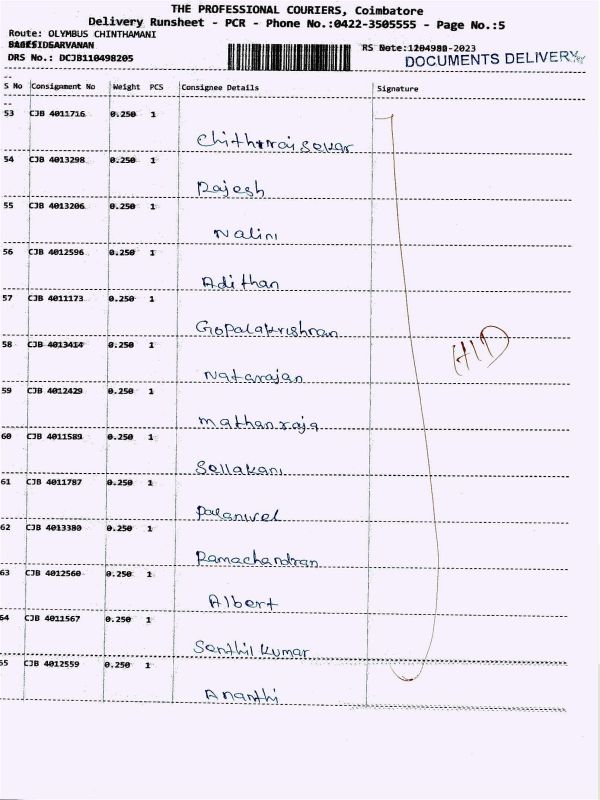 THE PROFESSIONAL COURIERS, Coimbatore
Delivery Runsheet - PCR - Phone No.:0422-3505555 - Page No.:5
Route: OLYMBUS CHINTHAMANI
DRS No.: DCJB110498205
DOCUMENTS DELIVERY
--
S No Consignment No Weight PCS Consignee Details Signature
--
53 CJB 4011716 0.250 1
Chithiraiselvar
54 CJB 4013298 0.250 1
Rajesh
55 CJB 4013206 0.250 1
Nalini
56 CJB 4012596 0.250 1
Adithan
57 CJB 4011173 0.250 1
Gopalakrishnan
58 CJB 4013414 0.250 1
Natarajan
59 CJB 4012429 0.250 1
Mathanraja
60 CJB 4011589 0.250 1
Sellakani
61 CJB 4011787 0.250 1
Palanivel
62 CJB 4013380 0.250 1
Ramachandran
63 CJB 4012560 0.250 1
Albert
64 CJB 4011567 0.250 1
Senthil Kumar
65 CJB 4012559 0.250 1
Ananthi